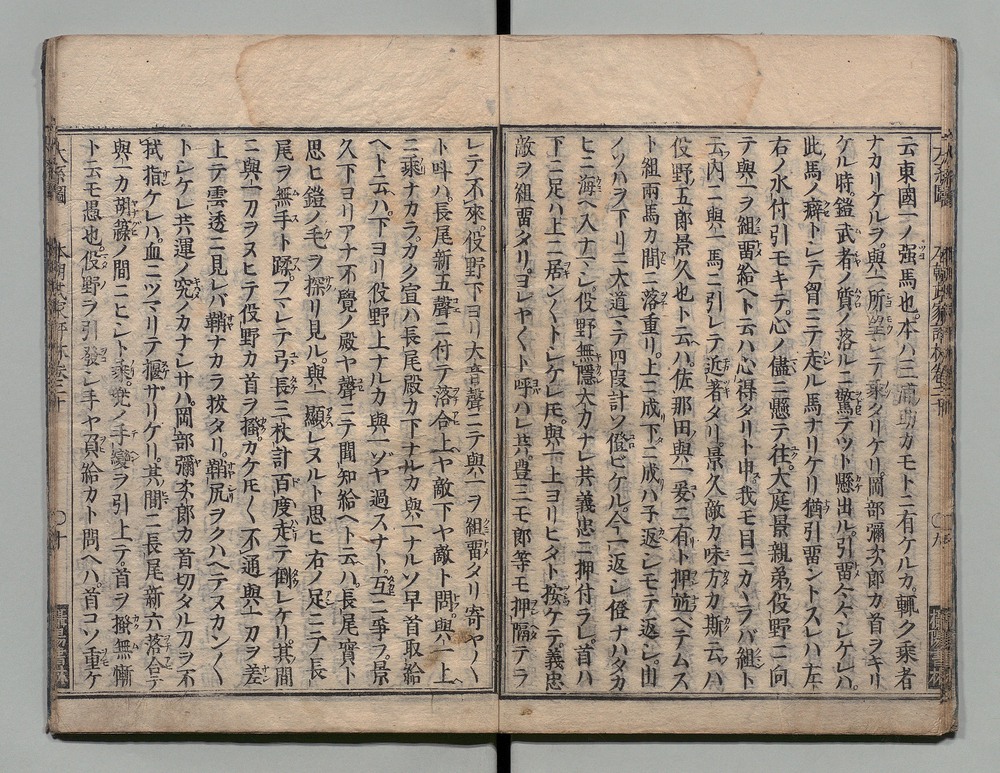 云東國一ノ强馬也。本ハ三浦助カモトニ有ケルカ。輒ク乘者
ナカリケルヲ。與一所望シテ乘タリケリ。岡部彌次郎カ首ヲキリ
ケル時。鎧武者ノ質ノ落ルニ驚テツト懸出ル。引畱々々シケレハ。
此馬ノ癖トシテ畱ニテ走ル馬ナリケリ猶引畱ントスレハ左
右ノ水付引モキテ。心ノ儘ニ懸テ往。大庭景親弟。俣野ニ向
テ與一ヲ組畱給ヘト云ハ心得タリト申。我モ目ニカヽラバ組ト
云内ニ與一馬ニ引レテ近著タリ。景久敵カ味方カ斯云ハ
俣野五郎景久也ト云ハ。佐那田與一爰ニ有ト押並ベテムス
ト組兩馬カ間ニ落重リ。上ニ成下ニ成ハ子返シモテ返シ。山
ノソハヲ下リニ大道マテ四段計ソ俓ヒケル。今一返シ俓ナハタカ
ヒニ海ヘ入ナマシ。俣野無隱大力ナレ共義忠ニ押付ラレ。首ハ
下ニ足ハ上ニ居ン〱トシケレ𪜈。與一上ヨリヒタト按ケテ。義忠
敵ヲ組畱タリ。ヨレヤ〱ト呼ハレ共。豊三モ郎等モ押隔テラ
レテ不來。俣野下ヨリ大音聲ニテ與一ヲ組畱タリ寄ヤ〱
ト呌ハ。長尾新五聲ニ付テ落合上ヤ敵下ヤ敵ト問。與一上
ニ乘ナカラ。カク宣ハ長尾殿カ下ナルカ與一ナルソ早首取給
ヘト云ハ。下ヨリ俣野上ナルカ與一ゾヤ過スナト。互ニ爭フ。景
久下ヨリアナ不覺ノ殿ヤ聲ニテ聞知給ヘト云ハ。長尾實ト
思ヒ鎧ノ毛ヲ探リ見ル。與一顯レヌルト思ヒ右ノ足ニテ長
尾ヲ無手ト蹂フマレテ弓長三枚計百度走テ倒レケリ。其間
ニ與一刀ヲヌヒテ俣野カ首ヲ搔ガケ𪜈〱不通與一刀ヲ差
上テ雲透ニ見レバ鞘ナカラ拔タリ。鞘尻ヲクハヘテヌカン〱
トシケレ共運ノ究ノカナシサハ。岡部彌次郎カ首切タル刀ヲ不
拭指ケレハ。血ニツマリテ搖ザリケリ。其間ニ長尾新六落合テ
與一カ胡籙ノ間ニヒシト乘。兜ノ手變ラ引上テ。首ヲ搔無慚
ト云モ愚也。俣野ヲ引發シ手ヤ負給カト問ヘハ。首コソ重ケ